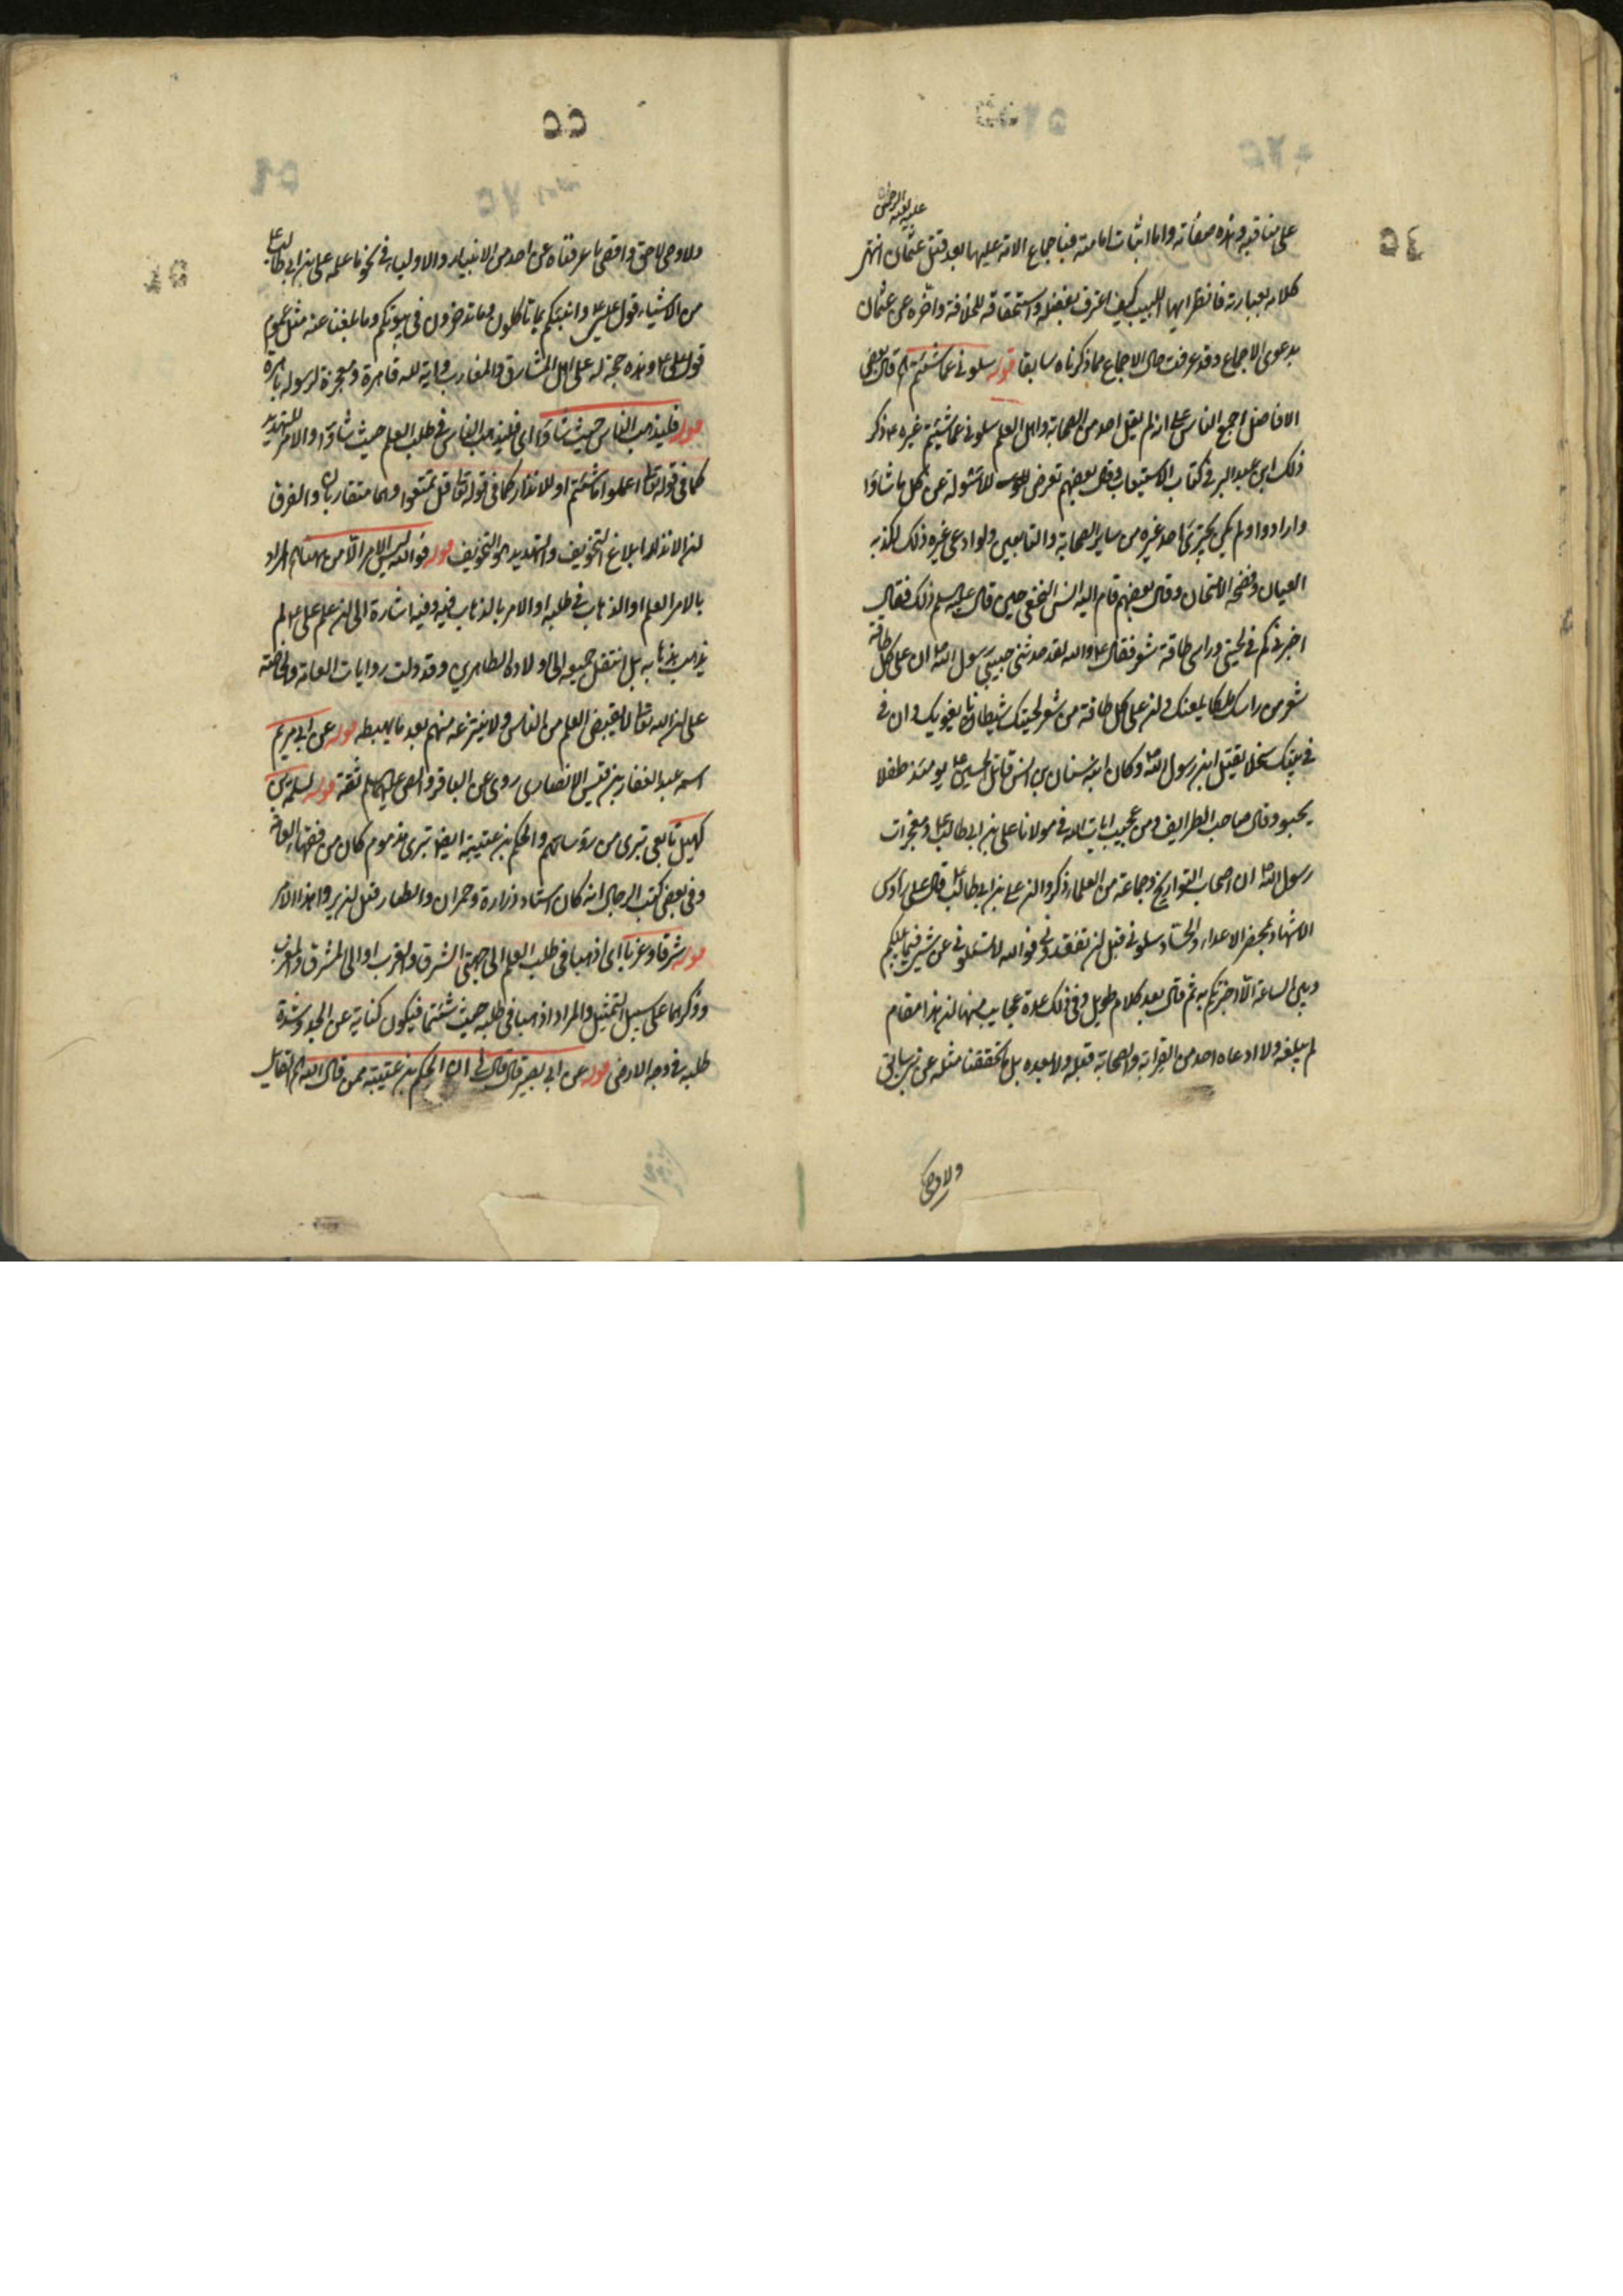 على مناقبه وهذه صفاته واما اثبات امامته فباجماع الامة عليها بعد قتل عثمان انتهى
كلامه بعبارته فانظر ايها اللبيب كيف اعترف بفضله واستحقاقه للخلافة واخره عن عثمان
بدعوى الاجماع وقد عرفت حال الاجماع مما ذكرناه سابقا قوله سلوني عما شئتم الخ قال بعض
الافاضل اجمع الناس على انه لم يقل احد من الصحابة واهل العلم سلوني عما شئتم غيره ع ذكر
ذلك ابن عبد البر في كتاب الاستيعاب وقال بعضهم تعرض للاسئولة عن كل ما شاؤا
وارادوا ولم يكن يجترى احد غيره من ساير الصحابة والتابعين ولو ادعى غيره ذلك لكذبه
العيان وفضحه الامتحان وقال بعضهم قام اليه انس النخعي حين قال عليه السلم ذلك فقال
اخبرني كم في لحيتي وراسي طاقة شعر فقال ع والله لقد حدثني حبيبي رسول الله ان على كل طاقة
شعر من راسك ملكا يلعنك وان على كل طاقة من شعر لحيتك شيطانا يغويك وان في
في بيتك سخلا يقتل ابن رسول الله وكان ابنه سنان بن انس قاتل الحسين ع يومئذ طفلا
يحبو وقال صاحب الطرايف ومن عجيب ايات الله في مولانا علي بن ابي طالب ومعجزات
رسول الله ان اصحاب التواريخ وجماعة من العلماء ذكروا ان علي بن ابي طالب قال على رؤس
الاشهاد بمحضر الاعداء والحساد سلوني قبل ان تفقدوني فوالله لا تسئلوني عن شيء فيما بينكم
وبين الساعة الا اخبرتكم به ثم قال بعد كلام طويل وفي ذلك عدة عجايب منها ان هذا مقام
لم يبلغه ولا ادعاه احد من القرابة والصحابة قبله ولا بعده بل ما تحققنا مثله عن نبي سابق
ولا وصي
ولا وصي لاحق واقصى ما عرفناه عن احد من الانبياء والاولياء في نحو ما علمه علي بن ابي طالب ع
من الاشياء قول عيسى ع وانبئكم بما تاكلون وما تدخرون في بيوتكم وما بلغنا عنه مثل عموم
قول علي ع وهذه حجة له على اهل المشارق والمغارب واية لله قاهرة ومعجزة لرسوله باهرة
قوله فليذهب الناس حيث شاؤا اي فليذهب الناس في طلب العلم حيث شاؤا والامر للتهديد
كما في قوله تعالى اعملوا ما شئتم او للانذار كما في قوله تعالى قل تمتعوا وهما متقاربان والفرق
ان الانذار ابلاغ التخويف والتهديد هو التخويف قوله فوالله ليس الامر الا من ههنا الخ المراد
بالامر العلم او الذهاب في طلبه او الامر بالذهاب فيه وفيه اشارة الى ان علم علي ع لم
يذهب بذهابه بل انتقل جميعه الى اولاده الطاهرين وقد دلت روايات العامة والخاصة
على ان الله تعالى لا يقبض العلم من الناس ولا ينتزعه منهم بعد ما يهبطه قوله عن ابي مريم
اسمه عبد الغفار بن قيس الانصاري روى عن الباقر والص عليهما السلم ثقة قوله لسلمة بن
كهيل تابعي تبري من رؤسائهم والحكم بن عتيبة ايضا تبري مذموم كان من فقهاء العامة
وفي بعض كتب الرجال انه كان استاد زرارة وحمران والطيار قبل ان يروا هذا الامر
قوله شرقا وغربا اي اذهبا في طلب العلم الى جهتي الشرق والغرب او الى المشرق والمغرب
وذكرهما على سبيل التمثيل والمراد اذهبا في طلبه حيث شئتما فيكون كناية عن الجد وشدة
طلبه في وجه الارض قوله عن ابي بصير قال قال لي ان الحكم بن عتيبة ممن قال الله الخ لقايل